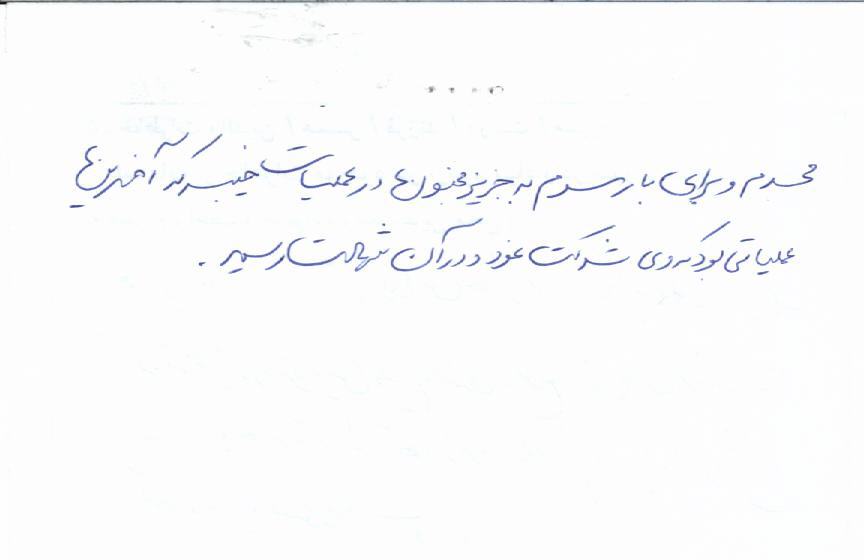 مجددم و برای بار سوم به جزیره مجنون ها در عملیات خیبر که آخرین ها
عملیاتی بود که وی شرکت نمود و در آن شهادت رسید .